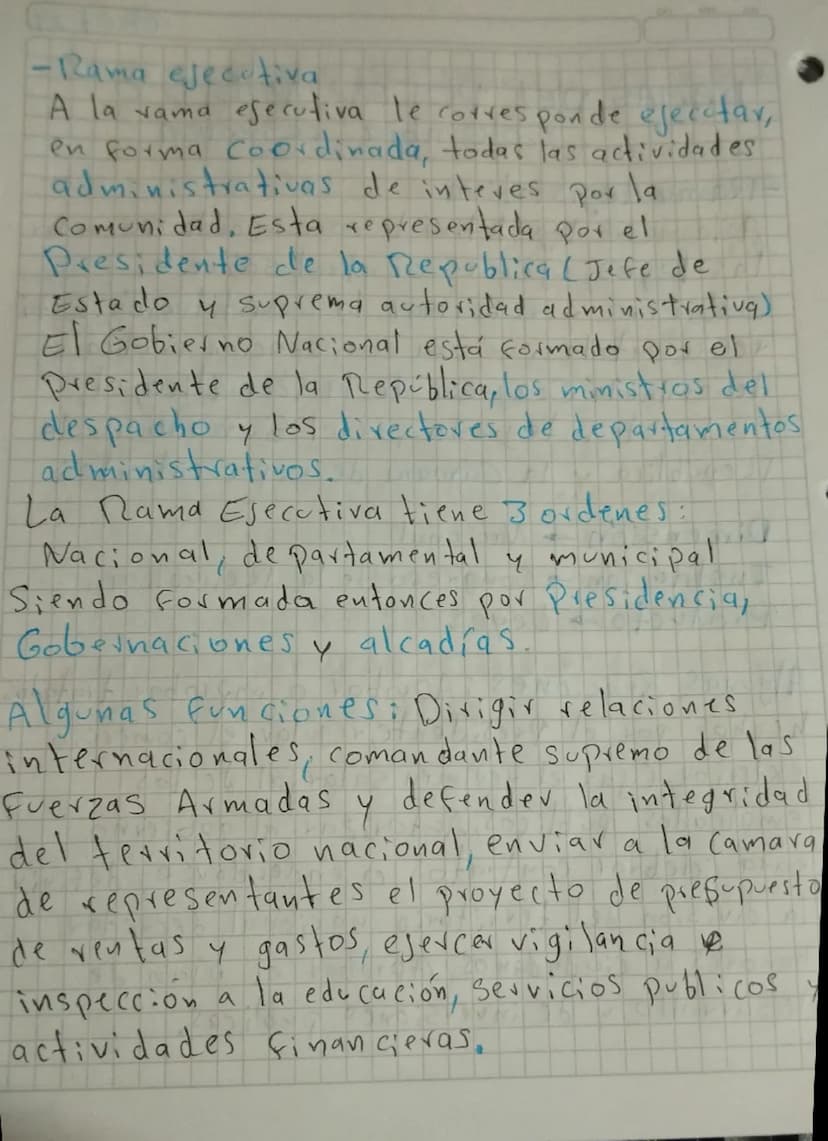 - Rama ejecutiva
A la rama ejecutiva le corresponde ejecutar,
en forma coordinada, todas las actividades
administrativas de interes por la
comunidad. Esta representada por el
Presidente de la Republica (Jefe de
Estado y suprema autoridad administrativa)
El Gobierno Nacional está formado por el
presidente de la República, los ministros del
despacho y los directores de departamentos
administrativos.
La Rama Ejecutiva tiene 3 ordenes:
Nacional, departamental y municipal
Siendo formada entonces por Presidencia,
Gobernaciones y alcadías.
Algunas funciones: Dirigir relaciones
internacionales, comandante supremo de las
Fuerzas Armadas y defender la integridad
del territorio nacional, enviar a la camara
de representantes el proyecto de presupuesto
de rentas y gastos, ejercer vigilancia e
inspección a la educación, servicios publicos y
actividades financieras.